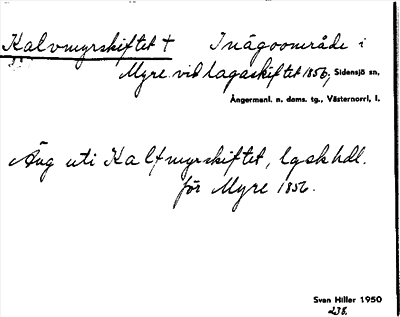 Kalvmyrskiftet † Inägoområde i
Myre vid lagaskiftet 1856, Sidensjö sn,
Ångermanl. n. doms. tg., Västernorrl. l.
Äng uti Kalfmyrskiftet, lgskhdl.
för Myre 1856.
Sven Hiller 1950
238.